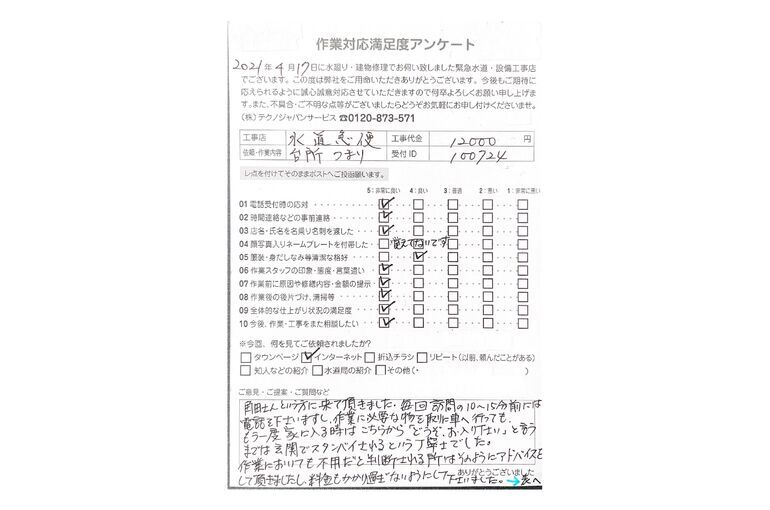 作業対応満足度アンケート
2021年4月17日に水廻り・建物修理でお伺い致しました緊急水道・設備工事店
でございます。この度は弊社をご用命いただきありがとうございます。今後もご期待に
応えられるように誠心誠意対応させていただきますので何卒よろしくお願い申し上げま
す。また、不具合・ご不明な点等がございましたらどうぞお気軽にお申し付けくださいませ。
(株)テクノジャパンサービス ☎0120-873-571
工事店 水道急便 工事代金 12000 円
依頼・作業内容 台所つまり 受付ID 100724
レ点を付けてそのままポストへご投函願います。
5:非常に良い 4:良い 3:普通 2:悪い 1:非常に悪い
01 電話受付時の応対
02 時間連絡などの事前連絡
03 店名・氏名を名乗り名刺を渡した
04 顔写真入りネームプレートを付帯した 覚えてないです
05 服装・身だしなみ等清潔な格好
06 作業スタッフの印象・態度・言葉遣い
07 作業前に原因や修繕内容・金額の提示
08 作業後の後片づけ、清掃等
09 全体的な仕上がり状況の満足度
10 今後、作業・工事をまた相談したい
※今回、何を見てご依頼されましたか?
タウンページ インターネット 折込チラシ リピート(以前、頼んだことがある)
知人などの紹介 水道局の紹介 その他(・ )
ご意見・ご提案・ご質問など
さんという方に来て頂きました。毎回訪問の10〜15分前には
電話を下さいますし、作業に必要な物を取りに車へ行っても、
もう一度家に入る時はこちらから「どうぞ、お入り下さい」と言う
までは玄関でスタンバイされるという丁寧さでした。
作業においても不用だと判断される所はそのようにアドバイスを
して頂きましたし、料金もかかり過ぎないようにして下さいました。→裏へ
ありがとうございました